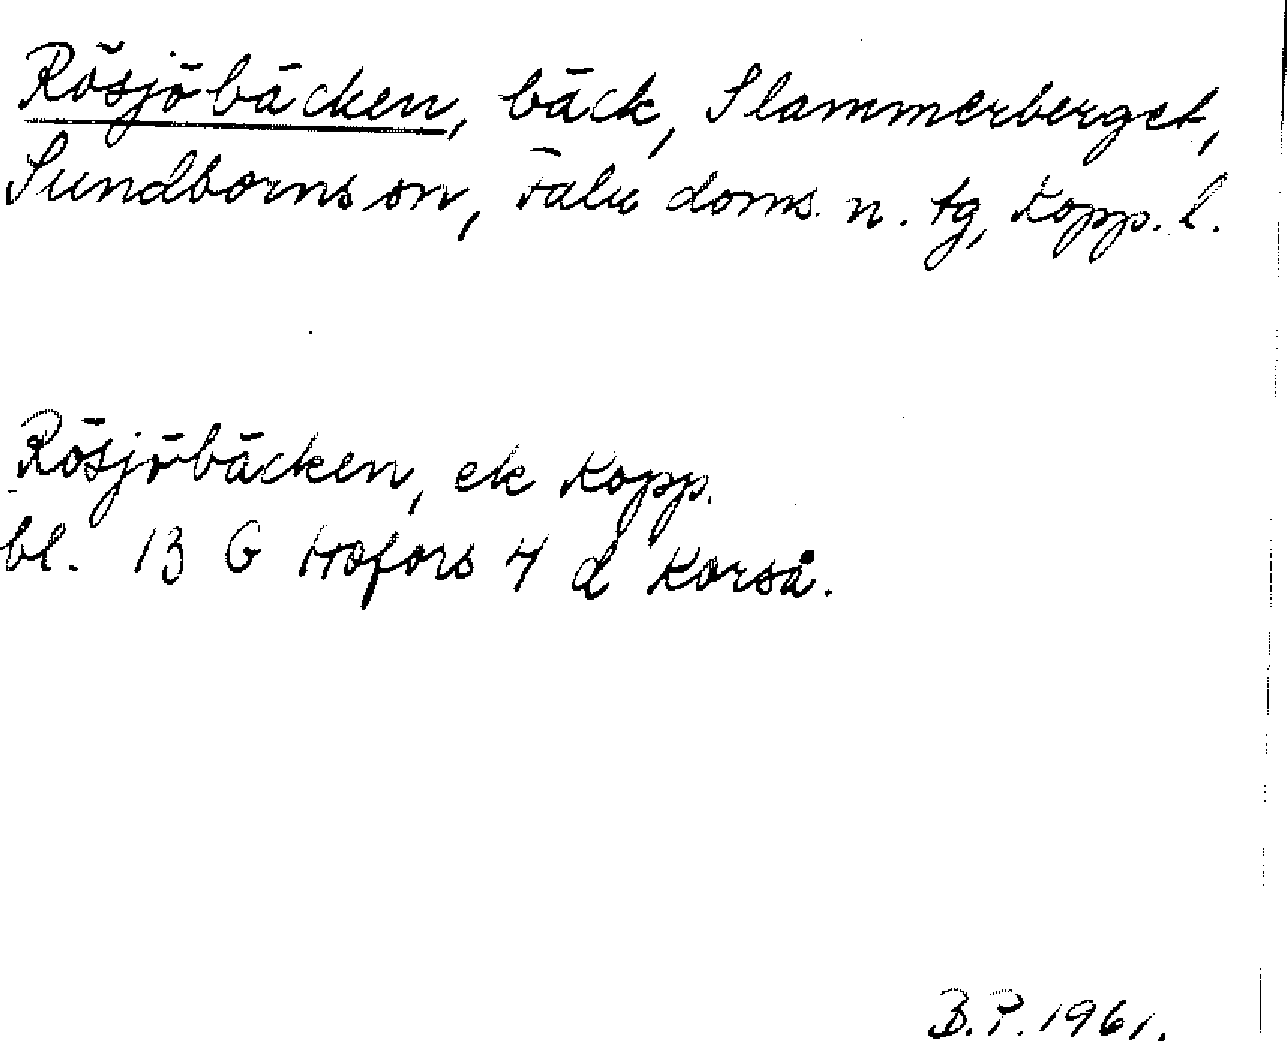 Rösjöbäcken, bäck, Slammerberget,
Sundborns sn, Falu doms. n. tg, Kopp. l.
Rösjöbäcken, ek Kopp.
bl. 13 G Hofors 4 d Korså.
B.P. 1961.